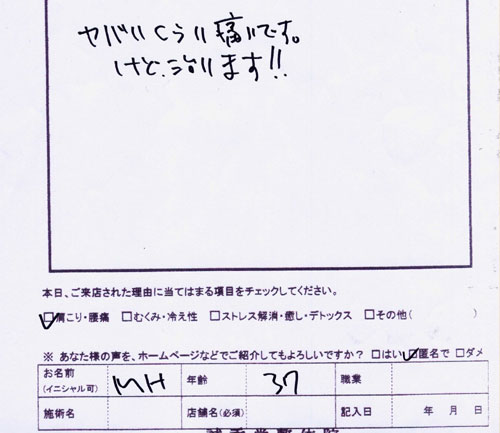 ヤバいくらい痛いです。
けど、治ります!!
本日、ご来店された理由に当てはまる項目をチェックしてください。
☑肩こり・腰痛 □むくみ・冷え性 □ストレス解消・癒し・デトックス □その他( )
※ あなた様の声を、ホームページなどでご紹介してもよろしいですか? □はい ☑匿名で □ダメ
お名前 MH 年齢 37 職業
(イニシャル可)
施術名 店舗名(必須) 記入日 年 月 日